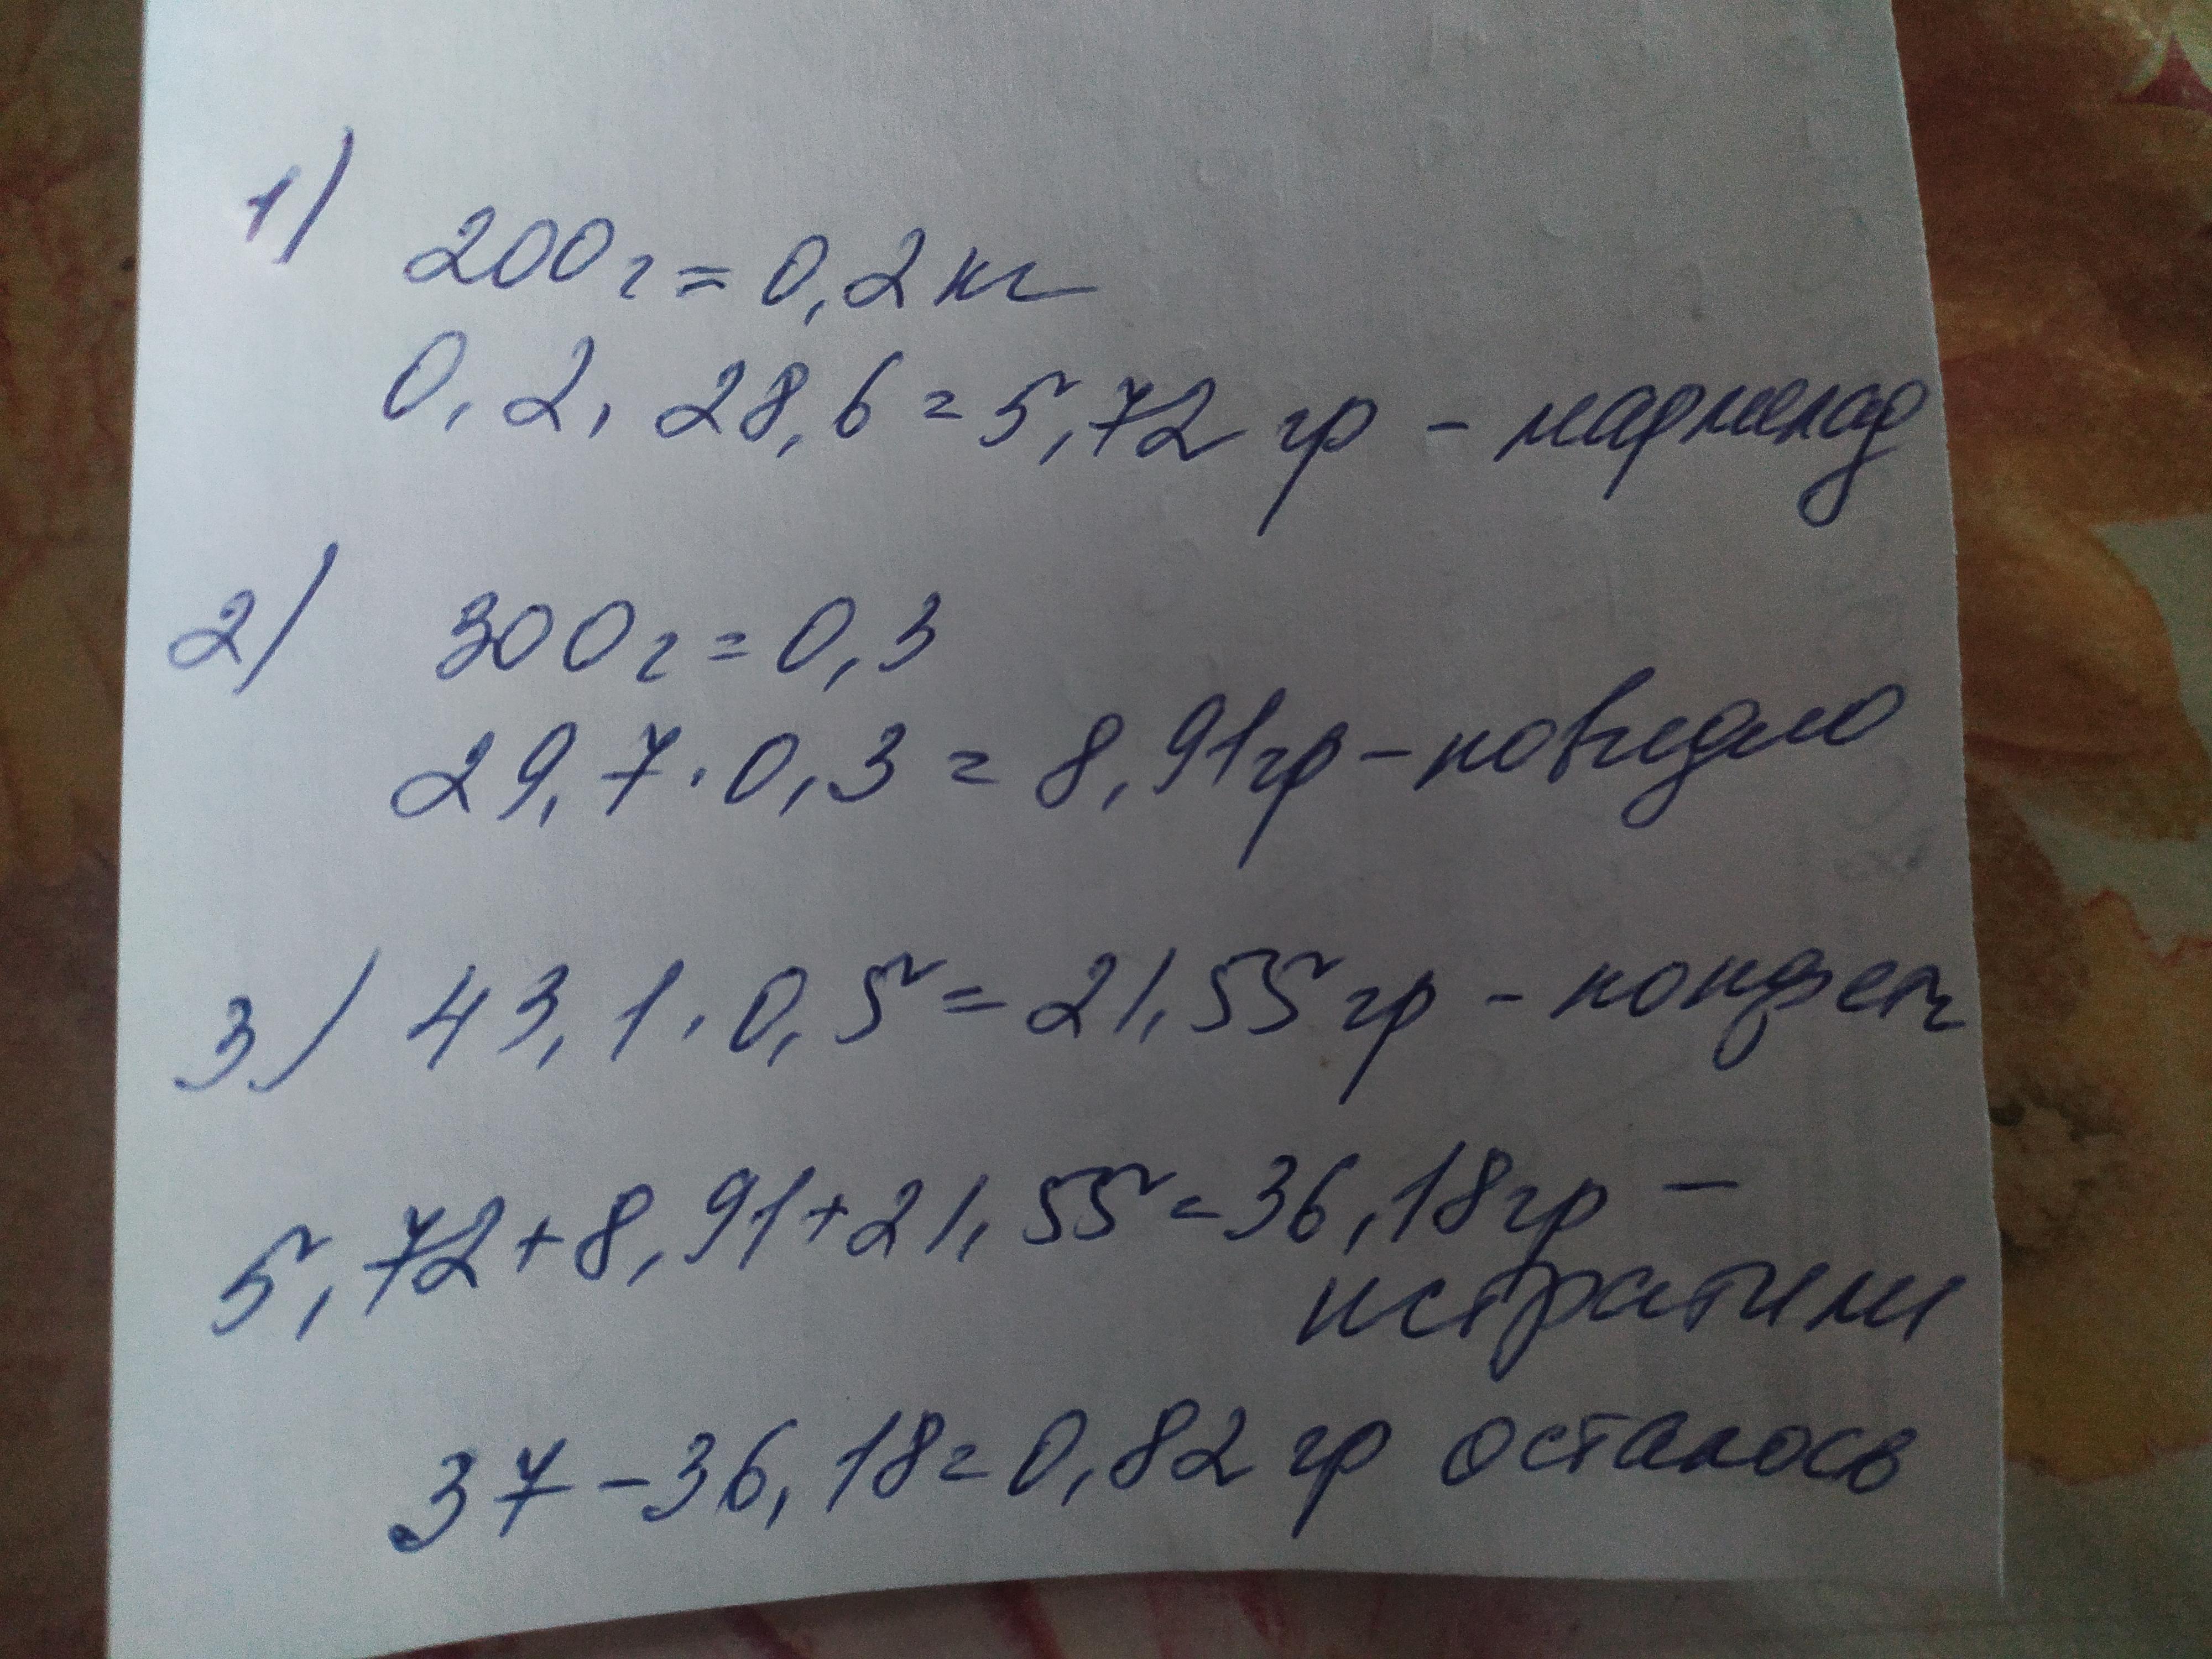 1)
200г = 0,2 кг
0,2 · 28,6 = 5,72 гр - мармелад
2) 300г = 0,3
29,7 · 0,3 = 8,91гр - повидло
3) 43,1 · 0,5 = 21,55 гр - конфеты
5,72 + 8,91 + 21,55 = 36,18 гр -
истратили
37 - 36,18 = 0,82 гр осталось